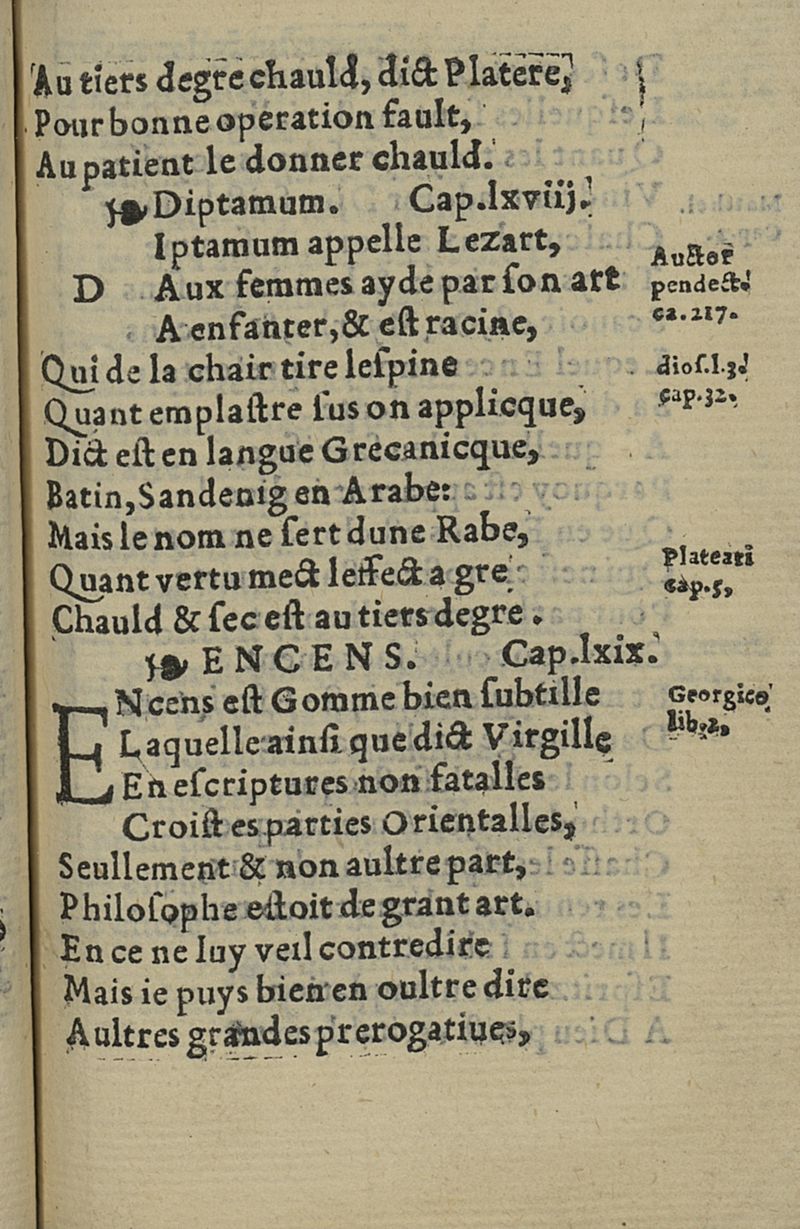 Au tiers degre chauld, dict Platere,
Pour bonne operation fault,
Au patient le donner chauld.
Diptamum. Cap.lxviij.
Iptamum appelle Lezart,
D Aux femmes ayde par ſon art
A enfanter, & eſt racine,
Qui de la chair tire leſpine
Quant emplaſtre ſus on applicque,
Dict eſt en langue Grecanicque,
Batin, Sandenig en Arabe:
Mais le nom ne ſert dune Rabe,
Quant vertu mect leffect a gre
Chauld & ſec eſt au tiers degre.
ENCENS. Cap.lxix.
ENcens eſt Gomme bien ſubtille
Laquelle ainſi que dict Virgille
En eſcriptures non fatalles
Croiſt es parties Orientalles,
Seullement & non aultre part,
Philoſophe eſtoit de grant art.
En ce ne luy veil contredire
Mais ie puys bien en oultre dire
Aultres grandes prerogatiues,
Auctor
pendect.
ca.217.
dioſ.l.3.
cap.32.
Plateari
cap.5,
Georgico
lib.2,